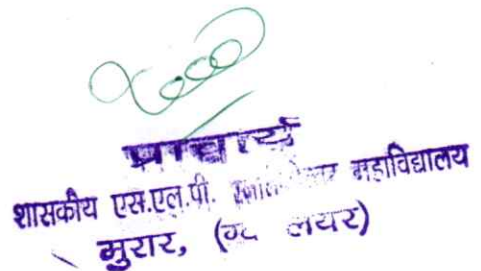 प्राचार्य
शासकीय एस.एल.पी. महाविद्यालय
मुरार,